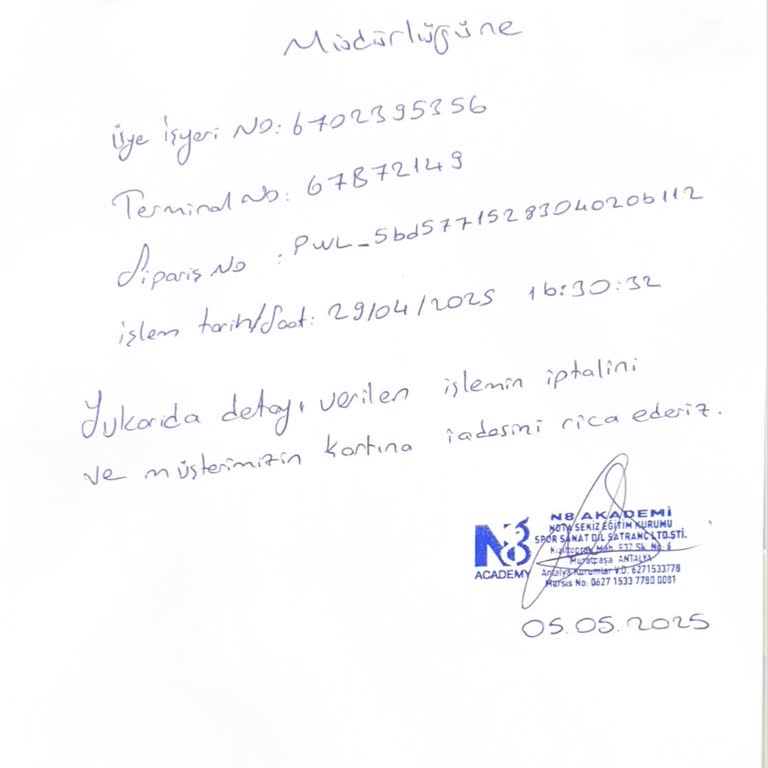 Müdürlüğüne
Üye İşyeri No: 6702395356
Terminal No: 67872149
Sipariş No : PWL_5bd57715283040206112
işlem tarih/Saat: 29/04/2025 16:30:32
Yukarıda detayı verilen işlemin iptalini
ve müşterimizin kartına iadesini rica ederiz.
N8 AKADEMİ
NOTA SEKİZ EĞİTİM KURUMU
SPOR SANAT DİL SATRANÇ LTD.ŞTİ.
Kızıltoprak Mah. 937 Sk. No: 6
Muratpaşa ANTALYA
Antalya Kurumlar V.D. 6271533778
Mersis No: 0627 1533 7780 0001
N8
ACADEMY
05.05.2025